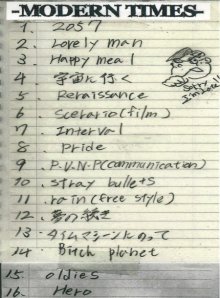 -MODERN TIMES-
1. 2057
2. Lovely man
3. Happy meal
4 宇宙に行く
5. Renaissance
6 Scenario (film)
7. Interval
8. Pride
9. P.V.N.P (communication)
10. Stray bullets
11. rain (free style)
12. 夢の続き
13. タイムマシーンにのって
14 Bitch planet
15. oldies
16. Hero